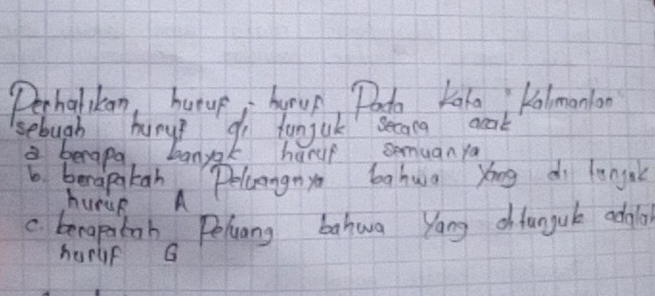 Perhatikan huruf - huruf Pada kata "Kalimantan
sebuah huruf di tunjuk secara acak
a berapa banyak huruf semuanya
b. berapakah Peluangnya bahwa yang di tunjuk
huruf A
c. berapakah Peluang bahwa Yang ditunjuk adalah
huruf G